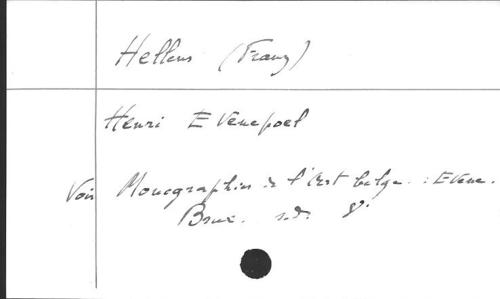 Hellens (Franz)
Henri Evenepoel
Voir Monographies de l'Art belge. : Evene.
Brux. s.d. 8°